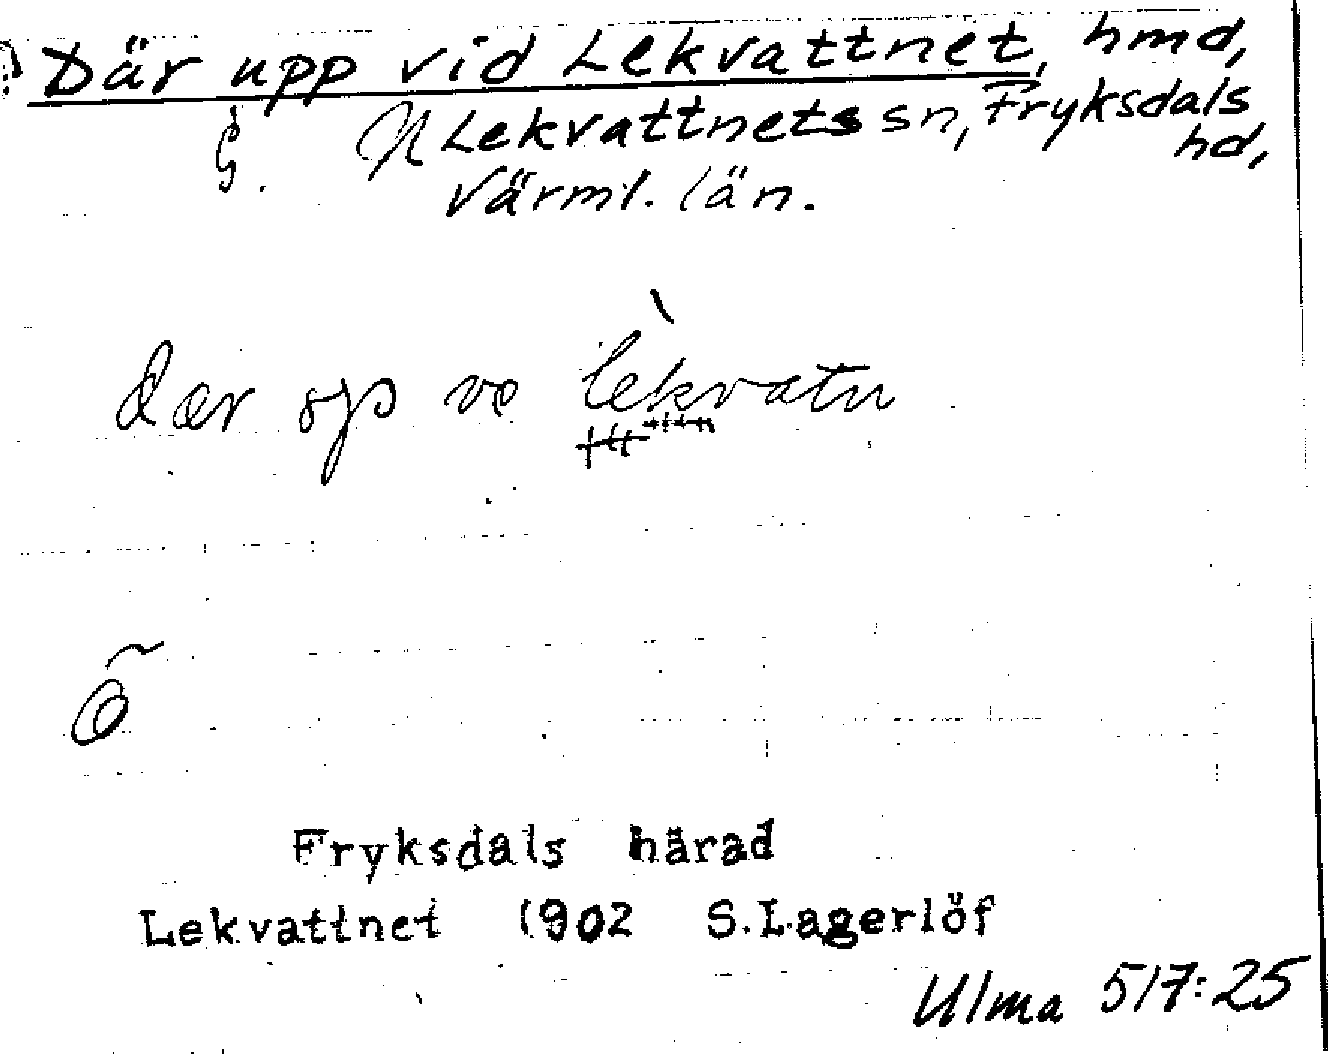 Där upp vid Lekvattnet, hmd,
Lekvattnets sn, Fryksdals
hd,
Värml. län.
dær op ve lekvatn
Fryksdals härad
Lekvattnet 1902 S.Lagerlöf
Ulma 517:25